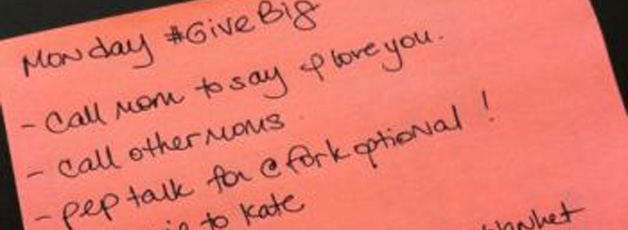 Monday #GiveBig
- Call mom to say I love you.
- call other moms
- pep talk for @forkoptional!
to Kate